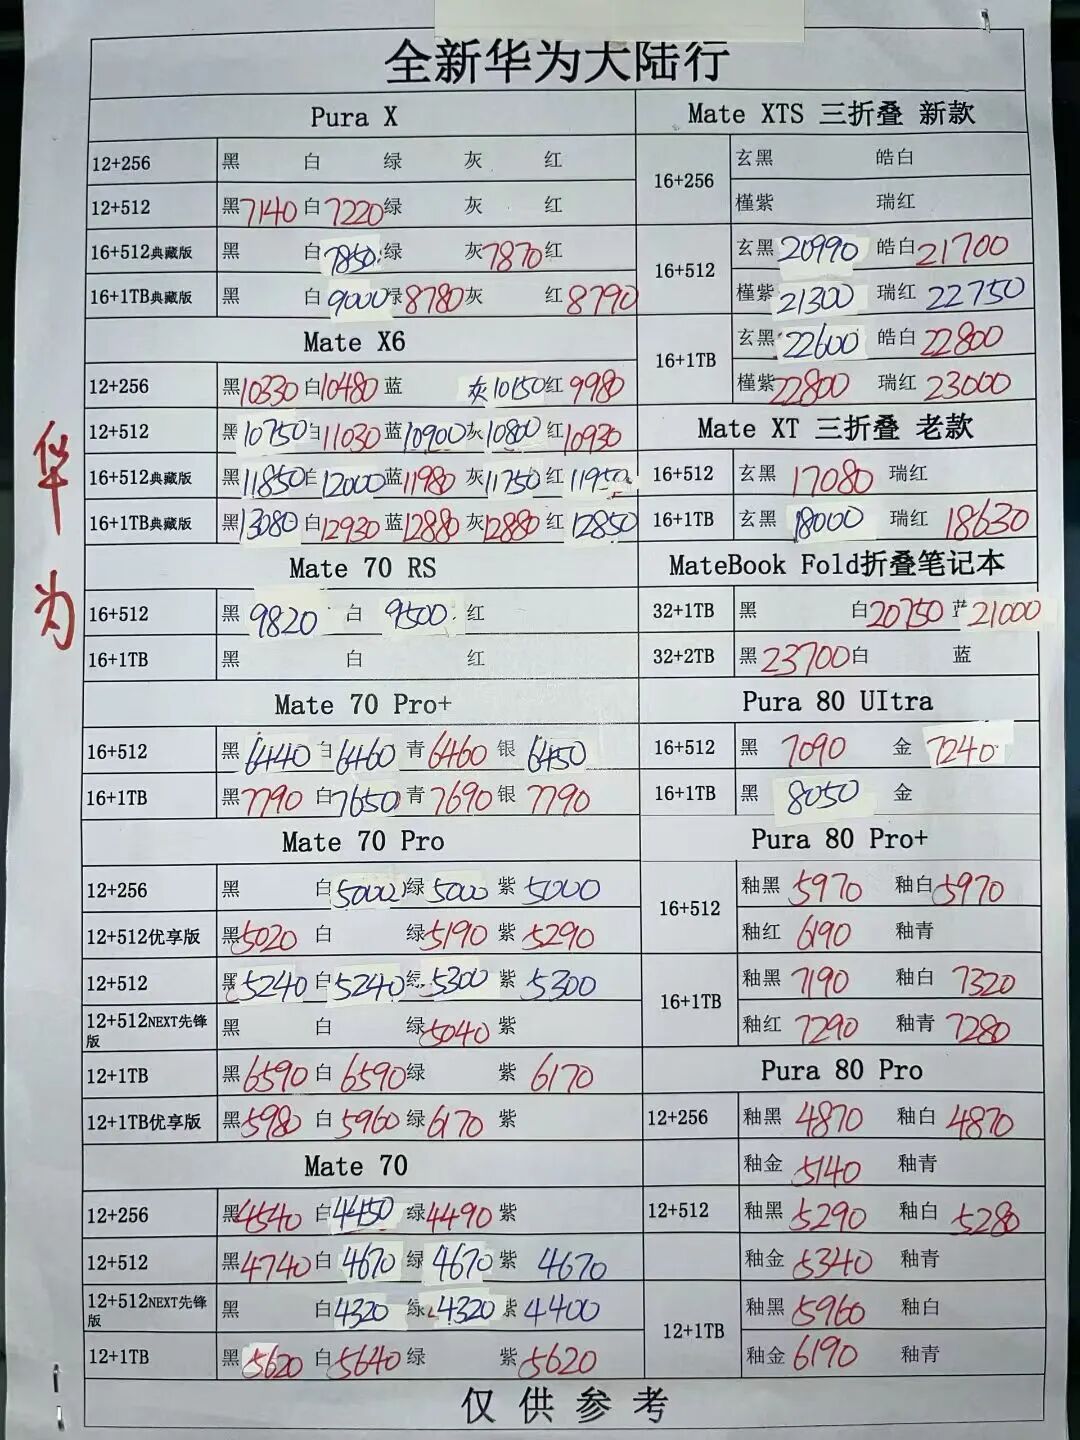 全新华为大陆行
华为
Pura X
12+256 黑 白 绿 灰 红
12+512 黑7140 白7220 绿 灰 红
16+512典藏版 黑 白7850 绿 灰7870 红
16+1TB典藏版 黑 白9000 绿8780 灰 红8790
Mate X6
12+256 黑10330 白10480 蓝 灰10150 红9980
12+512 黑10750 白11030 蓝10900 灰10800 红10930
16+512典藏版 黑11850 白12000 蓝11980 灰11750 红11950
16+1TB典藏版 黑13080 白12930 蓝12880 灰12880 红12850
Mate 70 RS
16+512 黑9820 白9500 红
16+1TB 黑 白 红
Mate 70 Pro+
16+512 黑6440 白6460 青6460 银6450
16+1TB 黑7790 白7650 青7690 银7790
Mate 70 Pro
12+256 黑 白5000 绿5000 紫5000
12+512优享版 黑5020 白 绿5190 紫5290
12+512 黑5240 白5240 绿5300 紫5300
12+512NEXT先锋版 黑 白 绿5040 紫
12+1TB 黑6590 白6590 绿 紫6170
12+1TB优享版 黑5980 白5960 绿6170 紫
Mate 70
12+256 黑4540 白4450 绿4490 紫
12+512 黑4740 白4670 绿4670 紫4670
12+512NEXT先锋版 黑 白4320 绿4320 紫4400
12+1TB 黑5620 白5640 绿 紫5620
Mate XTS 三折叠 新款
16+256 玄黑 皓白
槿紫 瑞红
16+512 玄黑20990 皓白21700
槿紫21300 瑞红22750
16+1TB 玄黑22600 皓白22800
槿紫22800 瑞红23000
Mate XT 三折叠 老款
16+512 玄黑17080 瑞红
16+1TB 玄黑18000 瑞红18630
MateBook Fold折叠笔记本
32+1TB 黑 白20750 蓝21000
32+2TB 黑23700 白 蓝
Pura 80 UItra
16+512 黑7090 金7240
16+1TB 黑8050 金
Pura 80 Pro+
16+512 釉黑5970 釉白5970
釉红6190 釉青
16+1TB 釉黑7190 釉白7320
釉红7290 釉青7280
Pura 80 Pro
12+256 釉黑4870 釉白4870
釉金5140 釉青
12+512 釉黑5290 釉白5280
釉金5340 釉青
12+1TB 釉黑5960 釉白
釉金6190 釉青
仅供参考